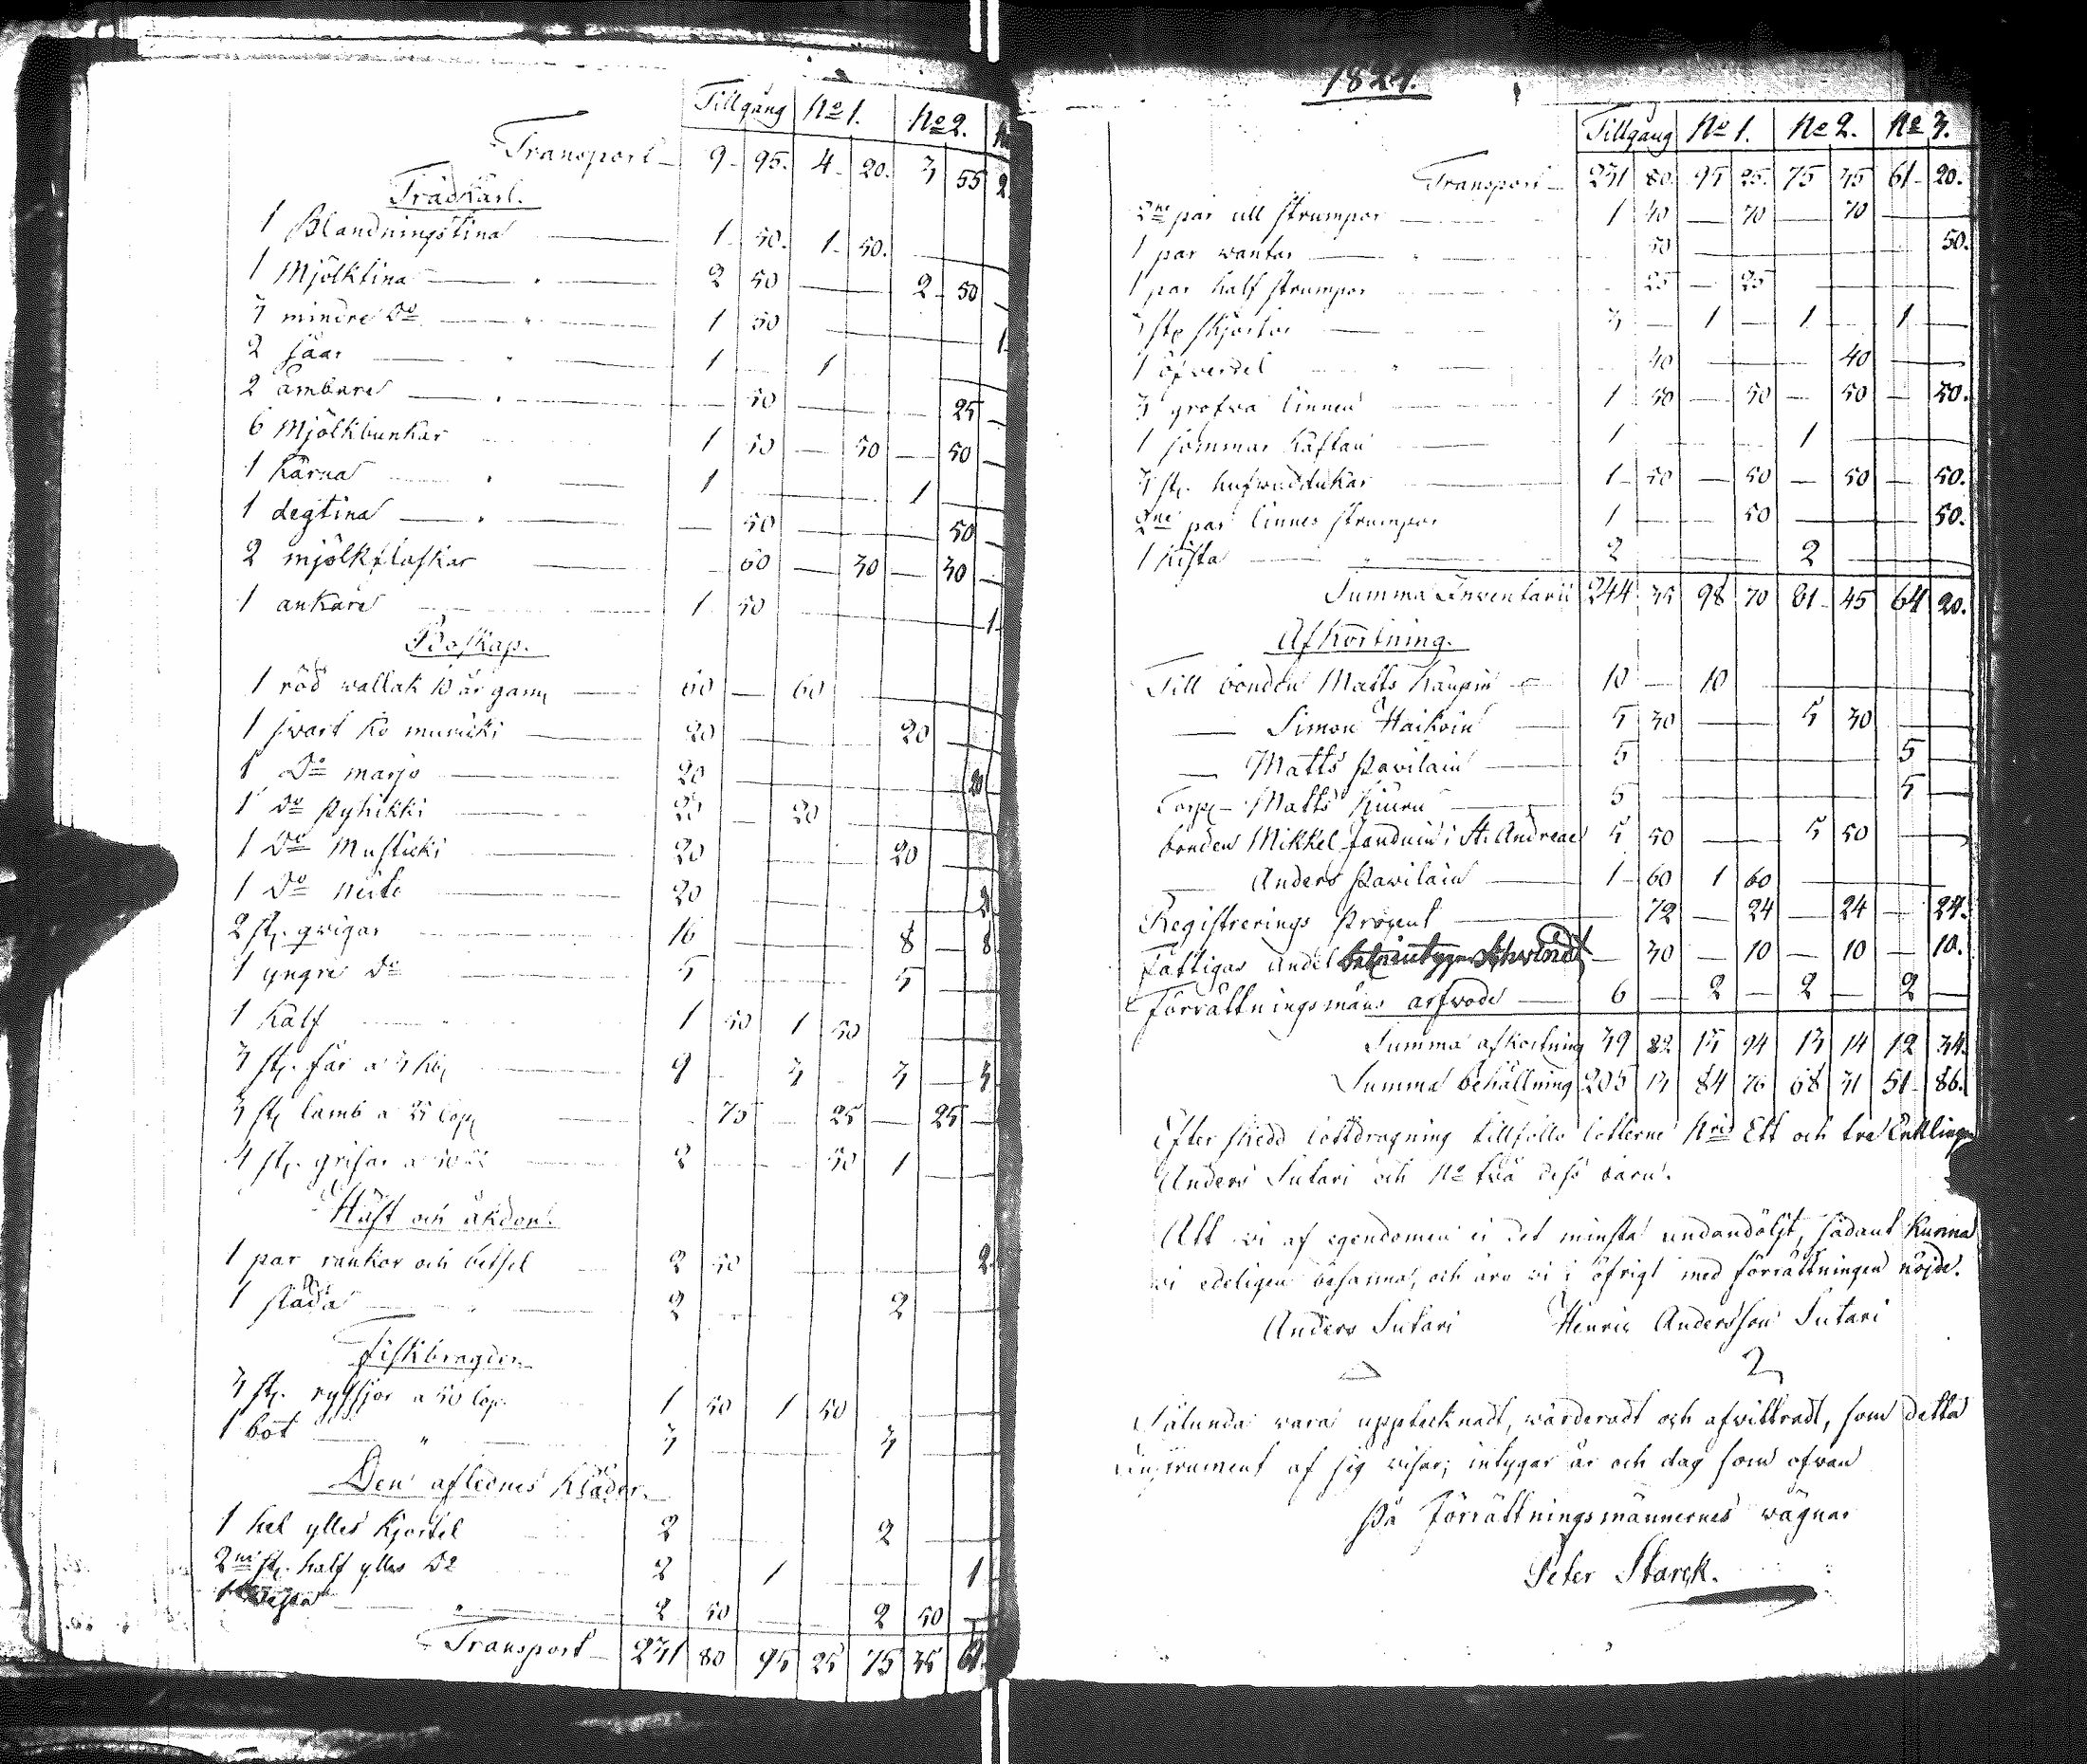 Tillgång No 1. No 2.
Transport 9 95. 4 20. 3 55 2
Trädkärl.
1 Blandningstina 1 50. 1 50.
1 Mjölktina 2 50 2 50
3 mindre Do 1 50 1
2 såar 1 1
2 ämbare 50 25
6 Mjölkbunkar 1 50 50
1 Kärna 1 1
1 degtina 50 50
2 mjölkflaskar 60 30 30
1 ankare 1 50 1
Boskap.
1 röd vallak 10 år gam 60 60
1 svart ko 20 20
1 Do marjo 20 20
1 Do Pyhikki 20 20
1 Do Mustikki 20 20
1 Do neito 20 2
2 st. qvigor 16 8 8
1 yngre Do 5 5
1 Kalf 1 50 1 50
3 st. får a 3 Rb 9 3 3 3
3 st lamb a 25 Cop 75 25 25
4 st. grisar a 50 2 50 1
Häst och åkdon.
1 par rankor och betsel 2 50 2
1 släda 2 2
Fiskbragder.
3 st. ryssjor a 50 Cop. 1 50 1 50
1 båt 3 3
Den aflednes Kläder.
1 hel ylles Kjortel 2 2
2ne st. half ylles Do 2 1 1
1 2 50 2 50
Transport 231 80 95 25 75 35 61.
1821.
Tillgång No 1. No 2. No 3.
Transport 231 80. 95 25. 75 35 61 20.
2ne par ull strumpor 1 40 70 70
1 par vantar 50 50.
1 par half strumpor 25 25
3 st skjortor 3 1 1 1
1 öfverdel 40 40
3 grofva linnen 1 50 50 50 50.
1 sommar Kaftan 1 1
3 st. hufvuddukar 1 50 50 50 50.
2ne par linnes strumpor 1 50 50.
1 Kista 2 2
Summa Inventarii 244 35 98 70 81 45 64 20.
Afkortning.
Till bonden Matts Käupin 10 10
Simon Haikoin 5 30 5 30
Matts Pavilain 5 5
Torp. Matts Kiuru 5 5
bonden Mikkel Janduin i St. Andreae 5 50 5 50
Anders Pavilain 1 60 1 60
Registrerings Procent 72 24 24 24.
Fattigas andel 30 10 10 10.
Förrättningsmäns arfvode 6 2 2 2
Summa afkortning 39 82 13 94 13 14 12 34.
Summa behållning 205 13 84 76 68 31 51 86.
Efter skedd lottdragning tillfölle lotterne Nris Ett och tre Enklingen
Anders Sutari och No två dess barn.
Att vi af egendomen ei det minsta undandöljt, sådant kunna
vi edeligen besanna, och äro vi i öfrigt med förrättningen nöjde.
Anders Sutari Henric Andersson Sutari
Sålunda vara upptecknadt, värderadt och afvittradt, som detta
Instrument af sig visar; intygar år och dag som ofvan
På Förrättningsmännernes vägnar
Peter Starck.